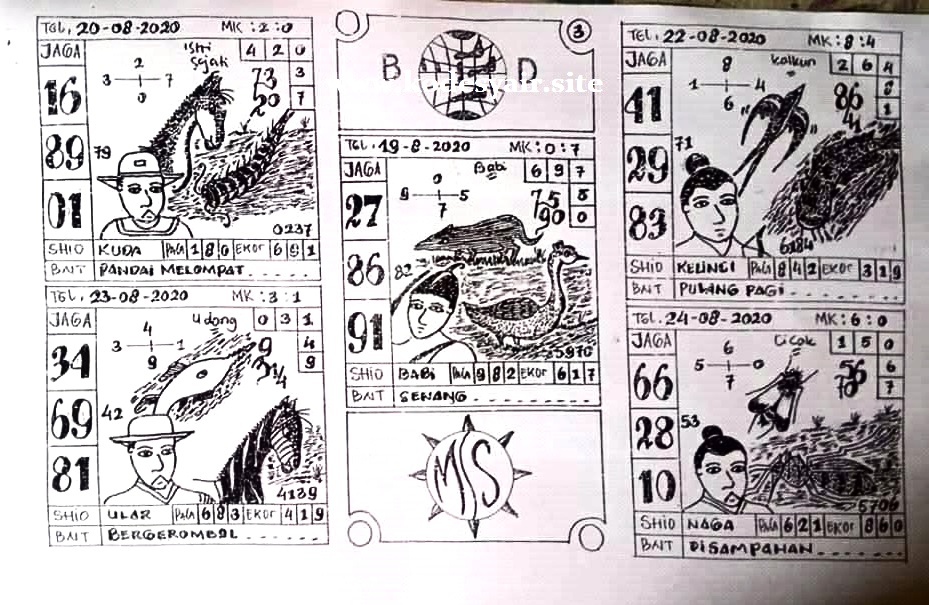 TGL, 20-08-2020 MK: 2:0
JAGA
16
89
01
2
3 7
0
istri Sejati
4 2 0
3
7
73
20
79
0237
SHIO KUDA PALA 1 8 0 EKOR 6 9 1
BNT PANDAI MELOMPAT......
TGL, 23-08-2020 MK: 3:1
JAGA
34
69
81
4
3 1
9
Udang
0 3 1
4
9
9
314
42
4139
SHIO ULAR PALA 6 8 3 EKOR 4 1 9
BNT BERGEROMBOL.......
3
B D
www.kodesyair.site
TGL. 19-8-2020 MK: 0:7
JAGA
27
86
91
0
9 5
7
Babi
6 9 7
8
0
75
90
82
5970
SHIO BABI PALA 9 8 2 EKOR 6 1 7
BNT SENANG.........
MS
TGL. 22-08-2020 MK: 8:4
JAGA
41
29
83
8
1 4
6
Kalkun
2 6 4
8
1
86
41
71
6184
SHIO KELINCI PALA 8 4 2 EKOR 3 1 9
BNT PULANG PAGI.........
TGL. 24-08-2020 MK: 6:0
JAGA
66
28
10
6
5 0
7
Cicak
1 5 0
6
7
56
70
53
5706
SHIO NAGA PALA 6 2 1 EKOR 8 6 0
BNT DISAMPAHAN.......